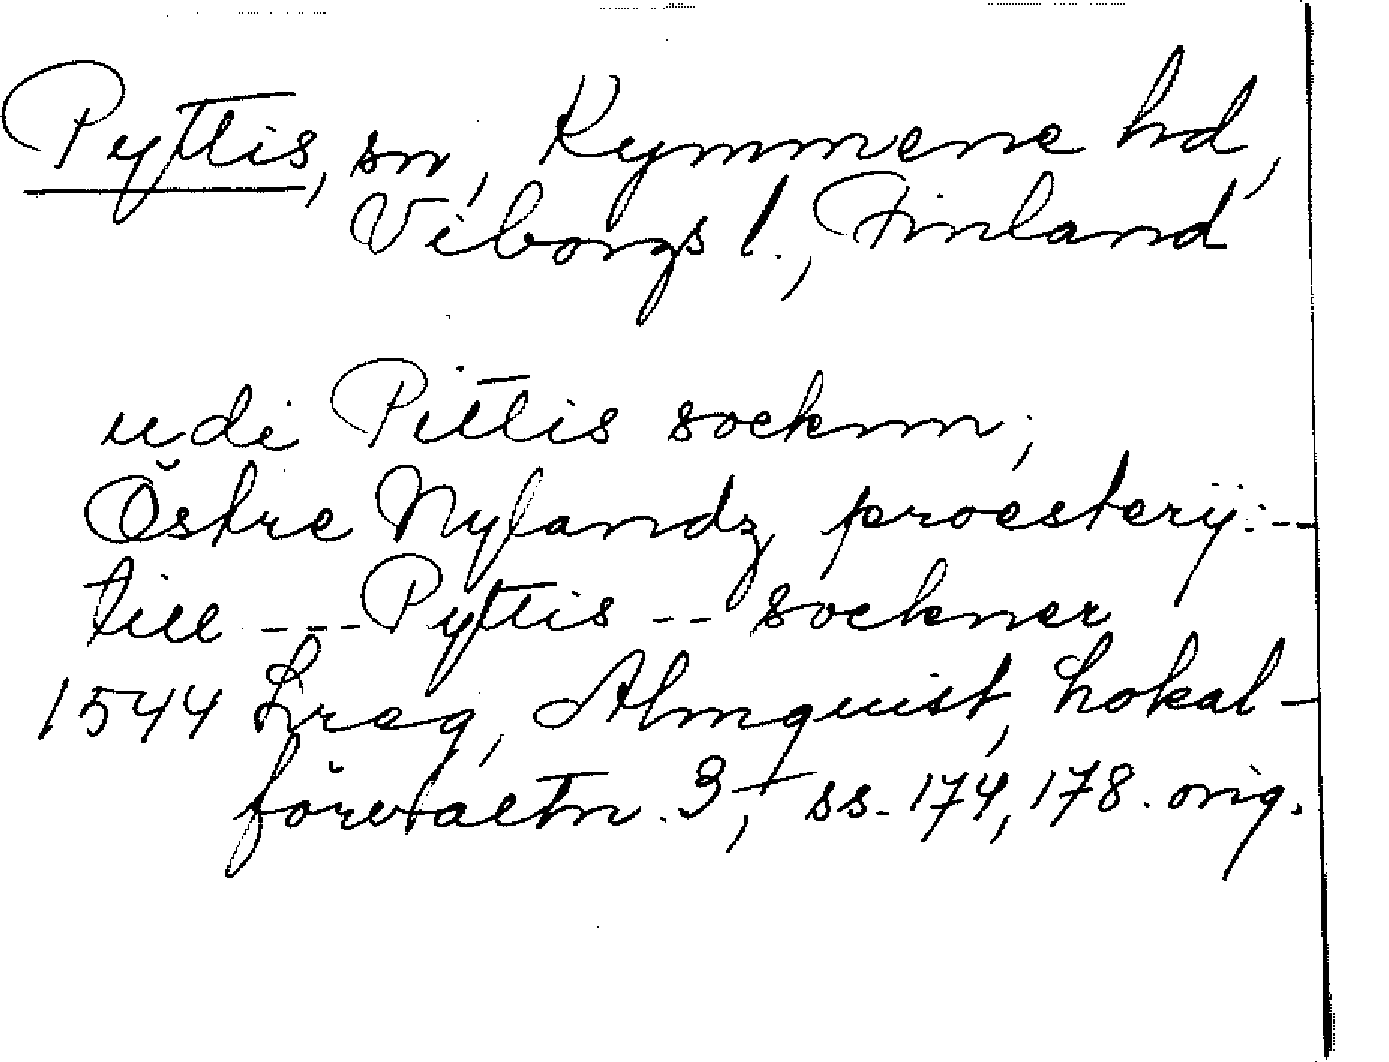 Pyttis, sn, Kymmene hd,
Viborgs l., Finland
udi Pittis socknn;
Östre Nylandz proesterij: --
till --- Pyttis -- sockner
1544 Lreg, Almquist, Lokal-
förvaltn. 3, ss. 174, 178. orig.